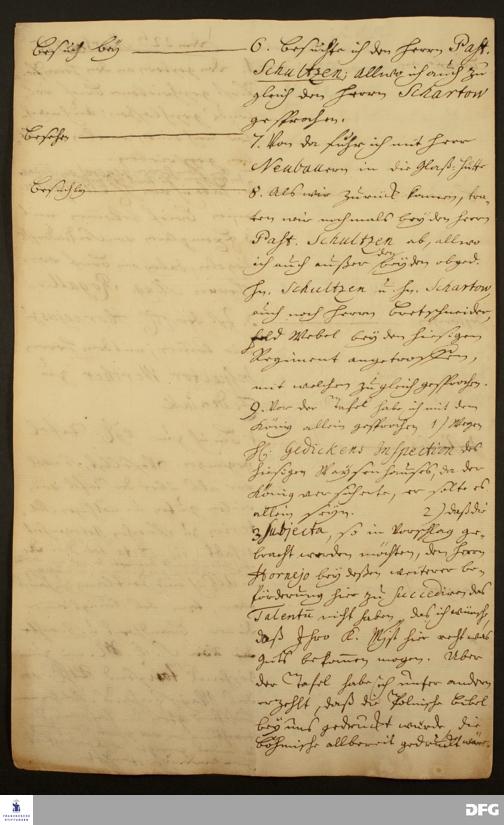 Besuch bey
6. besuchte ich den Herrn Past.
Schultzen; allwo ich auch zu
gleich den Herrn Schartow
gesprochen.
Besehen
7. Von da fuhr ich mit Herr
Neubauern in die Glaß-Hütte
8. Als wir zurück kamen, tra-
ten wir nochmals bey den Herrn
Past. Schultzen ab, allwo
ich auch außer den beyden obged.
Hn. Schultzen u. Hn. Schartow
auch noch Herrn Bretschneider,
Feld Webel bey den hiesigen
Regiment angetroffen,
mit welchen zugleich gesprochen.
9. Vor der Tafel habe ich mit dem
König allein gesprochen 1) Wegen
H. Gedickens Inspection des
hiesigen Waysenhauses, da der
König versicherte, er solte es
allein seyn. 2) daß die
3 Subjecta, so in Vorschlag ge-
bracht worden möchten, den Herrn
Hornejo bey deßen weiterer be-
förderung hier zu succediren das
Talentum nicht haben, das ich wünsche,
daß Ihro K. Mjst hier recht was
guts bekommen mögen. Uber
der Tafel habe ich unter andern
erzehlt, daß die Polnische Bibel
bey uns gedruckt würde, die
Böhmische allbereit gedruckt wäre.
FRANCKESCHE
STIFTUNGEN
DFG